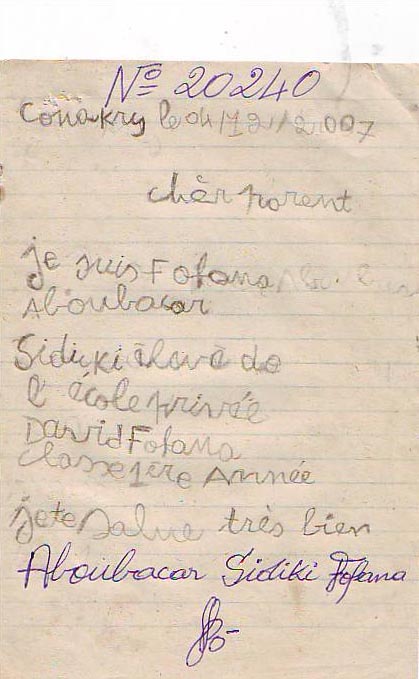 N° 20240
Conakry le 04/12/2007
chèr parent
je suis Fofana
Aboubacar
Sidiki élevè de
l'école privée
David Fofana
classe 1ère Année
je te salue très bien
Aboubacar Sidiki Fofana